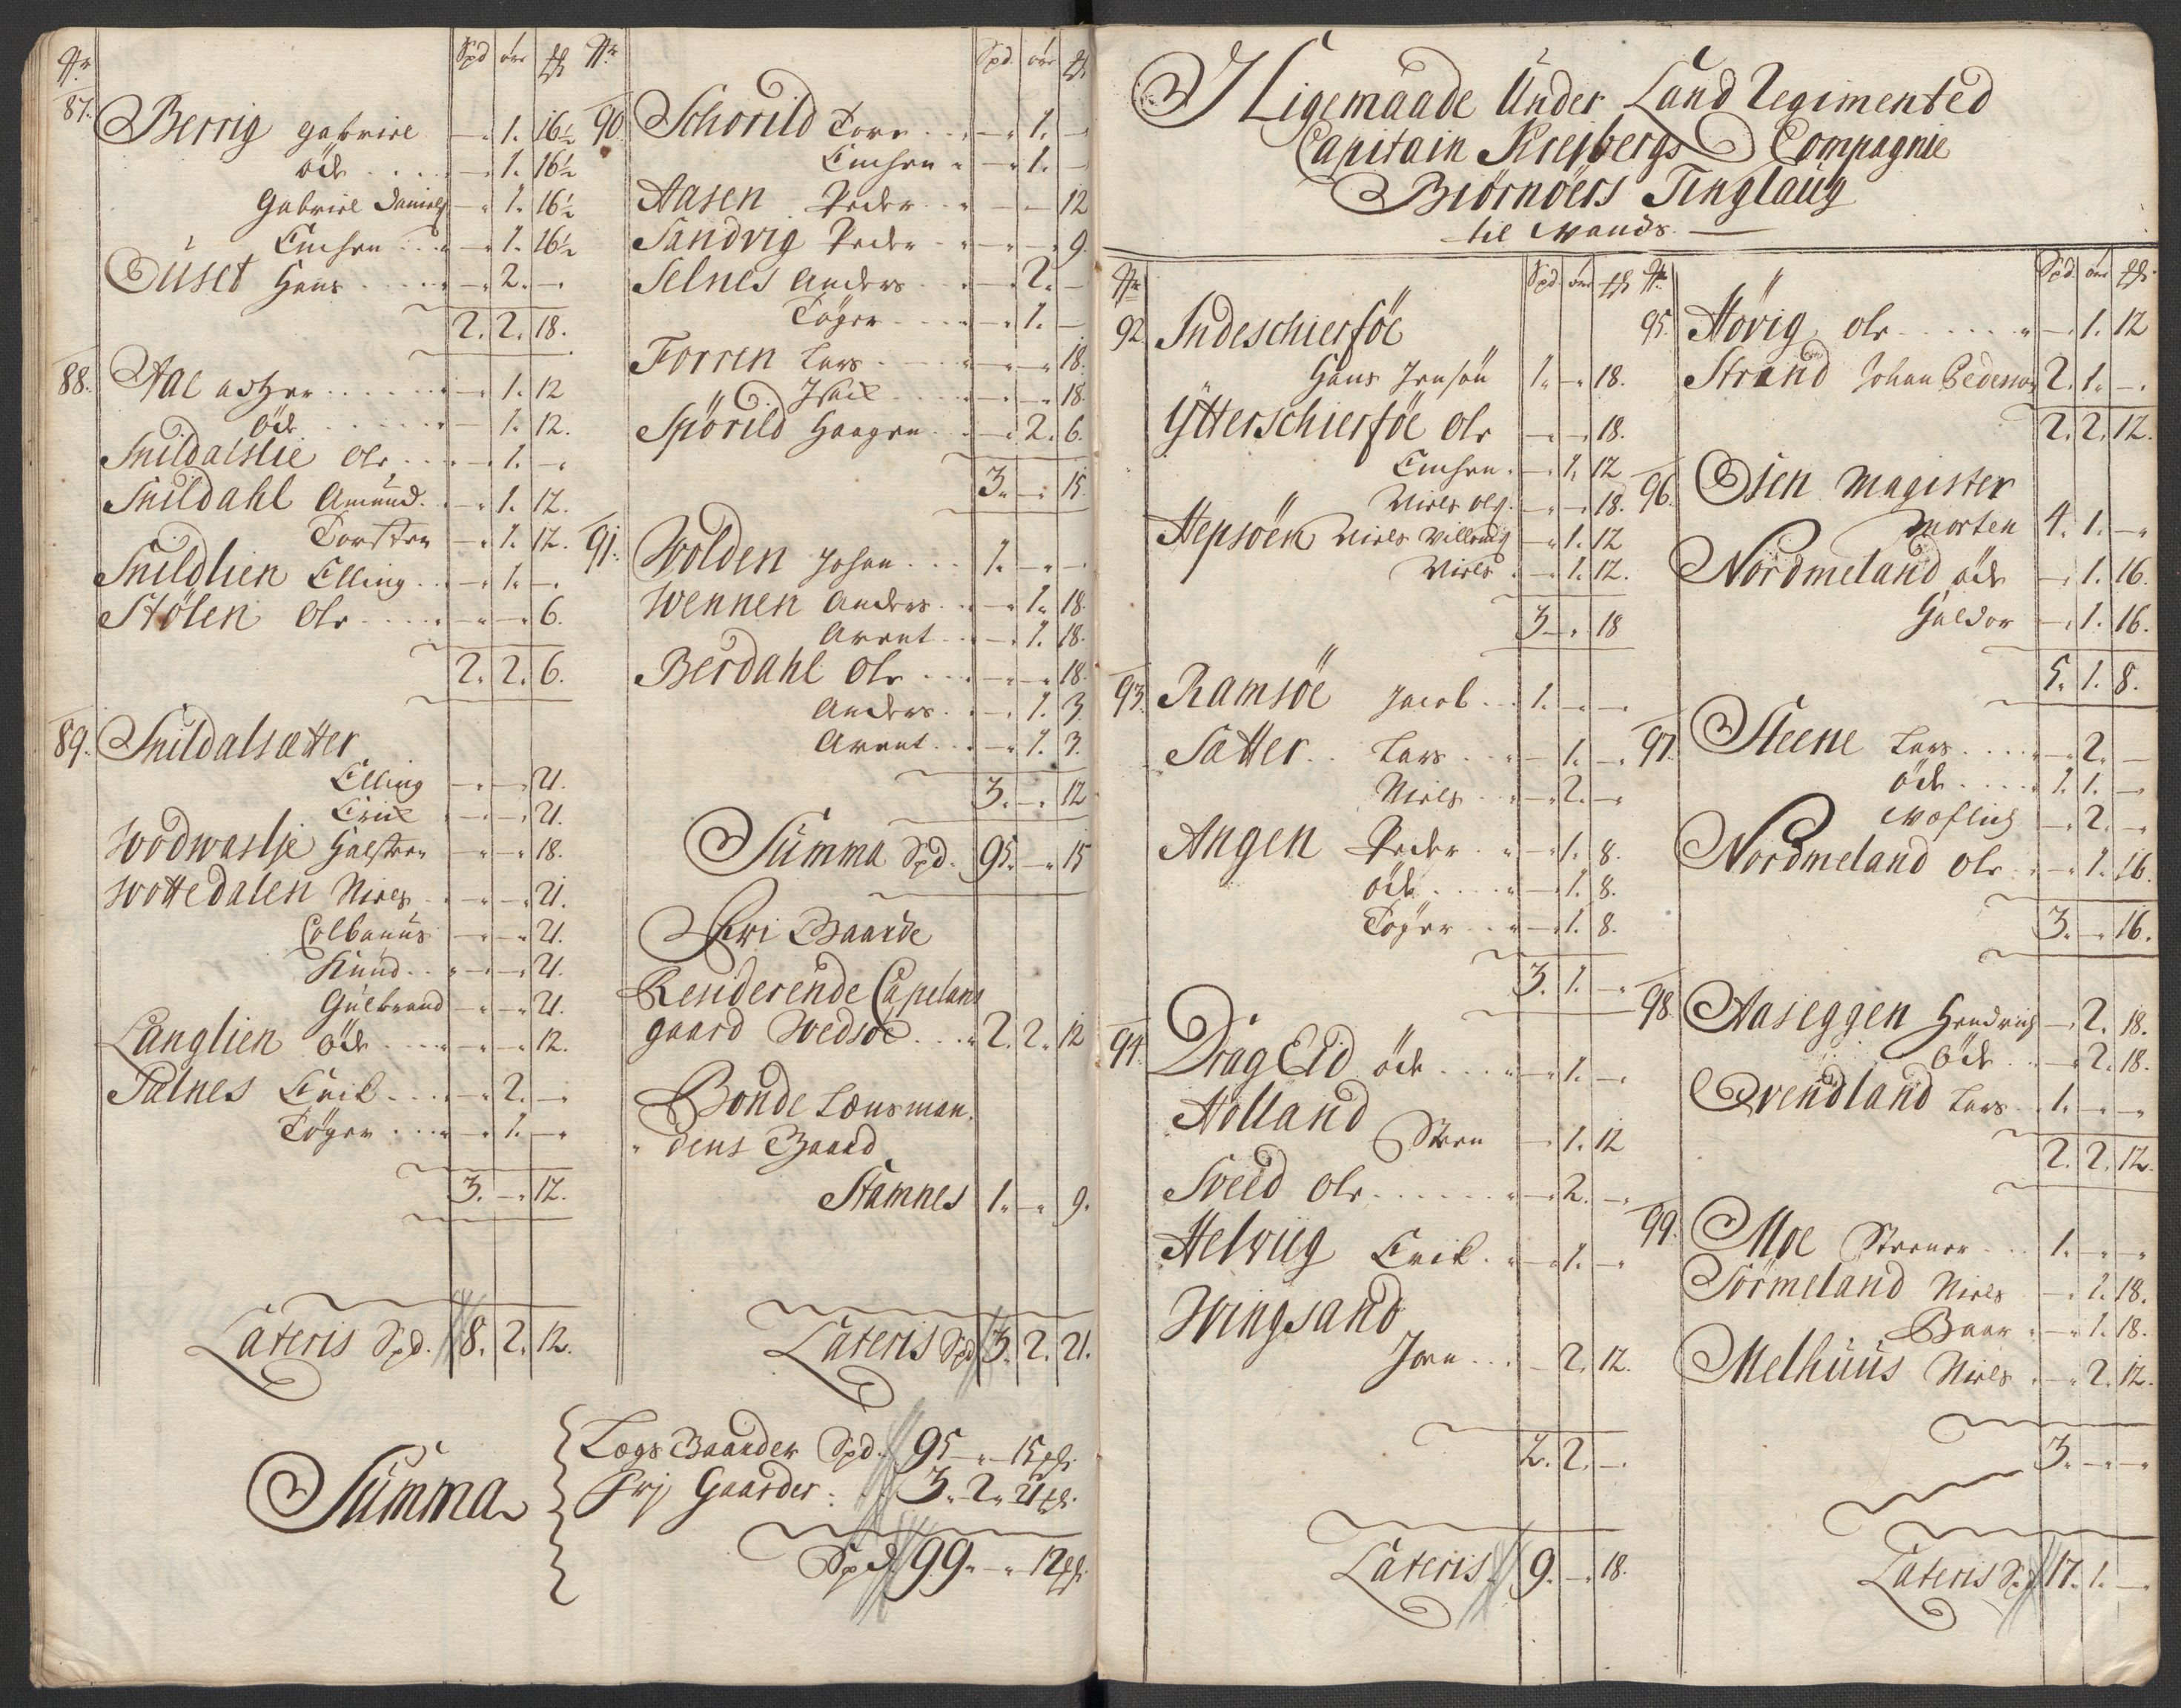 Nr Spd øre ℔
87. Berrig Gabriel — 1. 16½
öde — 1. 16½
Gabriel Daniels — 1. 16½
Einchen — 1. 16½
Øuset Hans — 2. —
2. 2. 18.
88. Aae — 1. 12
öde — 1. 12.
Snildalslie Ole — 1. —
Snildahl Amund — 1. 12.
Torsten — 1. 12.
Snildlien Elling — 1. —
Stølen Ole — — 6.
2. 2. 6.
89. Snildalsætter
Elling — — 21.
Erick — — 21.
Wodwaslje Halsten — — 18.
Wottedalen Niels — — 21.
Colbanus — — 21.
Knud — — 21.
Gulbrand — — 21.
Langlien öde — — 12.
Salnes Erik — 2. —
Töger — 1. —
3. — 12.
Lateris Spd. 8. 2. 12.
Nr Spd. øre ℔
90. Schorild Tore — 1. —
Einchen — 1. —
Aasen Peder — — 12
Sandvig Peder — — 9.
Selnes Anders — 2. —
Töger — 1. —
Forren Lars — — 18.
Isack — — 18.
Spörild Haagen — 2. 6.
3. — 15.
91. Wolden Johan 1. — —
Wennen Anders — 1. 18.
Arent — 1. 18.
Berdahl Ole — — 18.
Anders — 1. 3.
Arent — 1. 3.
3. — 12
Summa Spd. 95. — 15
Fri Gaarde
Residerende Capelans
gaard Wedsöe 2. 2. 12
Bonde Lensman
dens Gaard
Stamnes 1. — 9.
Lateris Spd 3. 2. 21.
Summa
Lægs Gaarder Spd. 95 — 15 ℔.
Frj Gaarder: 3. 2. 21 ℔.
Spd. 99. — 12 ℔.
I Ligemaade Under Land Regimented
Capitain Krejbergs Compagnie
Biörnöers Tinglaug
til Mands
Nr Spd øre ℔
92. Indeschierföe
Hans Jensön 1. — 18.
Ytterschierföe Ole — — 18.
Einchen — 1. 12
Niels Ols. — — 18.
Hepsöen Niels Willads — 1. 12
Niels — 1. 12.
3 — 18
93. Ramsöe Jacob 1. — —
Sætter Lars — 1. —
Niels — 2. —
Angen Peder — 1. 8.
öde — 1. 8.
Töger — 1. 8.
3. 1. —
94. Drag Eid öde — 1. —
Holland
Sten — 1. 12
Sveed Ole — 2. —
Helviig Erik — 1. —
Wingsand
Jon — 2. 12.
2. 2. —
Lateris 9. — 18.
Nr Spd øre ℔
95. Hövig Ole — 1. 12
Strand Johan Pederson 2. 1. —
2. 2. 12.
96. Osen Magister
Morten 4. 1. —
Nordmeland öde — 1. 16.
Haldor — 1. 16.
5. 1. 8.
97. Steene Lars — 2. —
öde 1. 1. —
— 2. —
Nordmeland Ole — 1. 16.
3. — 16.
98. Aaseggen Hendrich — 2. 18.
öde — 2. 18.
Qvendland Lars 1. — —
2. 2. 12.
99. Moe Steener 1. — —
Sörmeland Niels — 1. 18.
Baar — 1. 18.
Melhuus Niels — 2. 12.
3. — —
Lateris Spd 17. 1. —